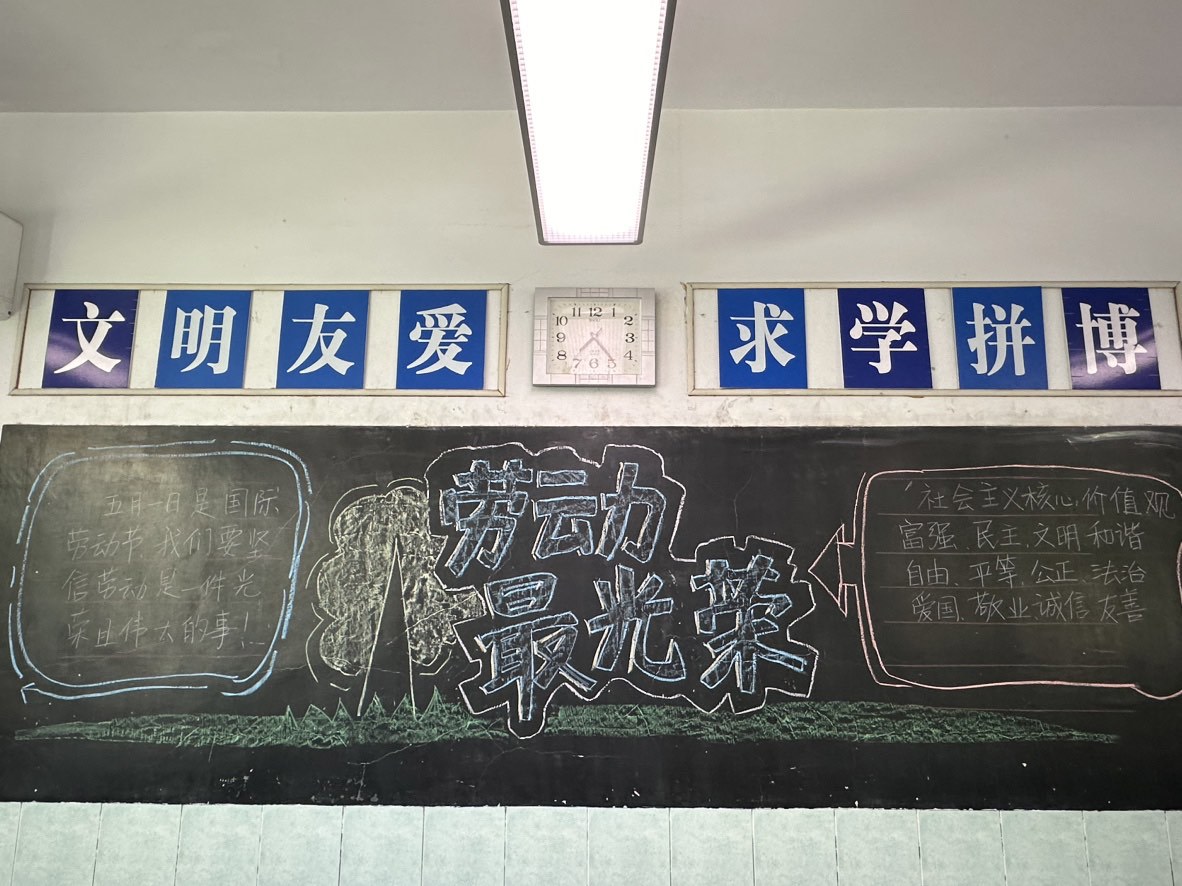 文明友爱
求学拼博
11 12 1
10 2
9 3
8 4
7 6 5
五月一日是国际
劳动节 我们要坚
信劳动是一件光
荣且伟大的事！
劳动
最光荣
社会主义核心价值观
富强、民主、文明 和谐
自由、平等、公正、法治
爱国、敬业、诚信、友善